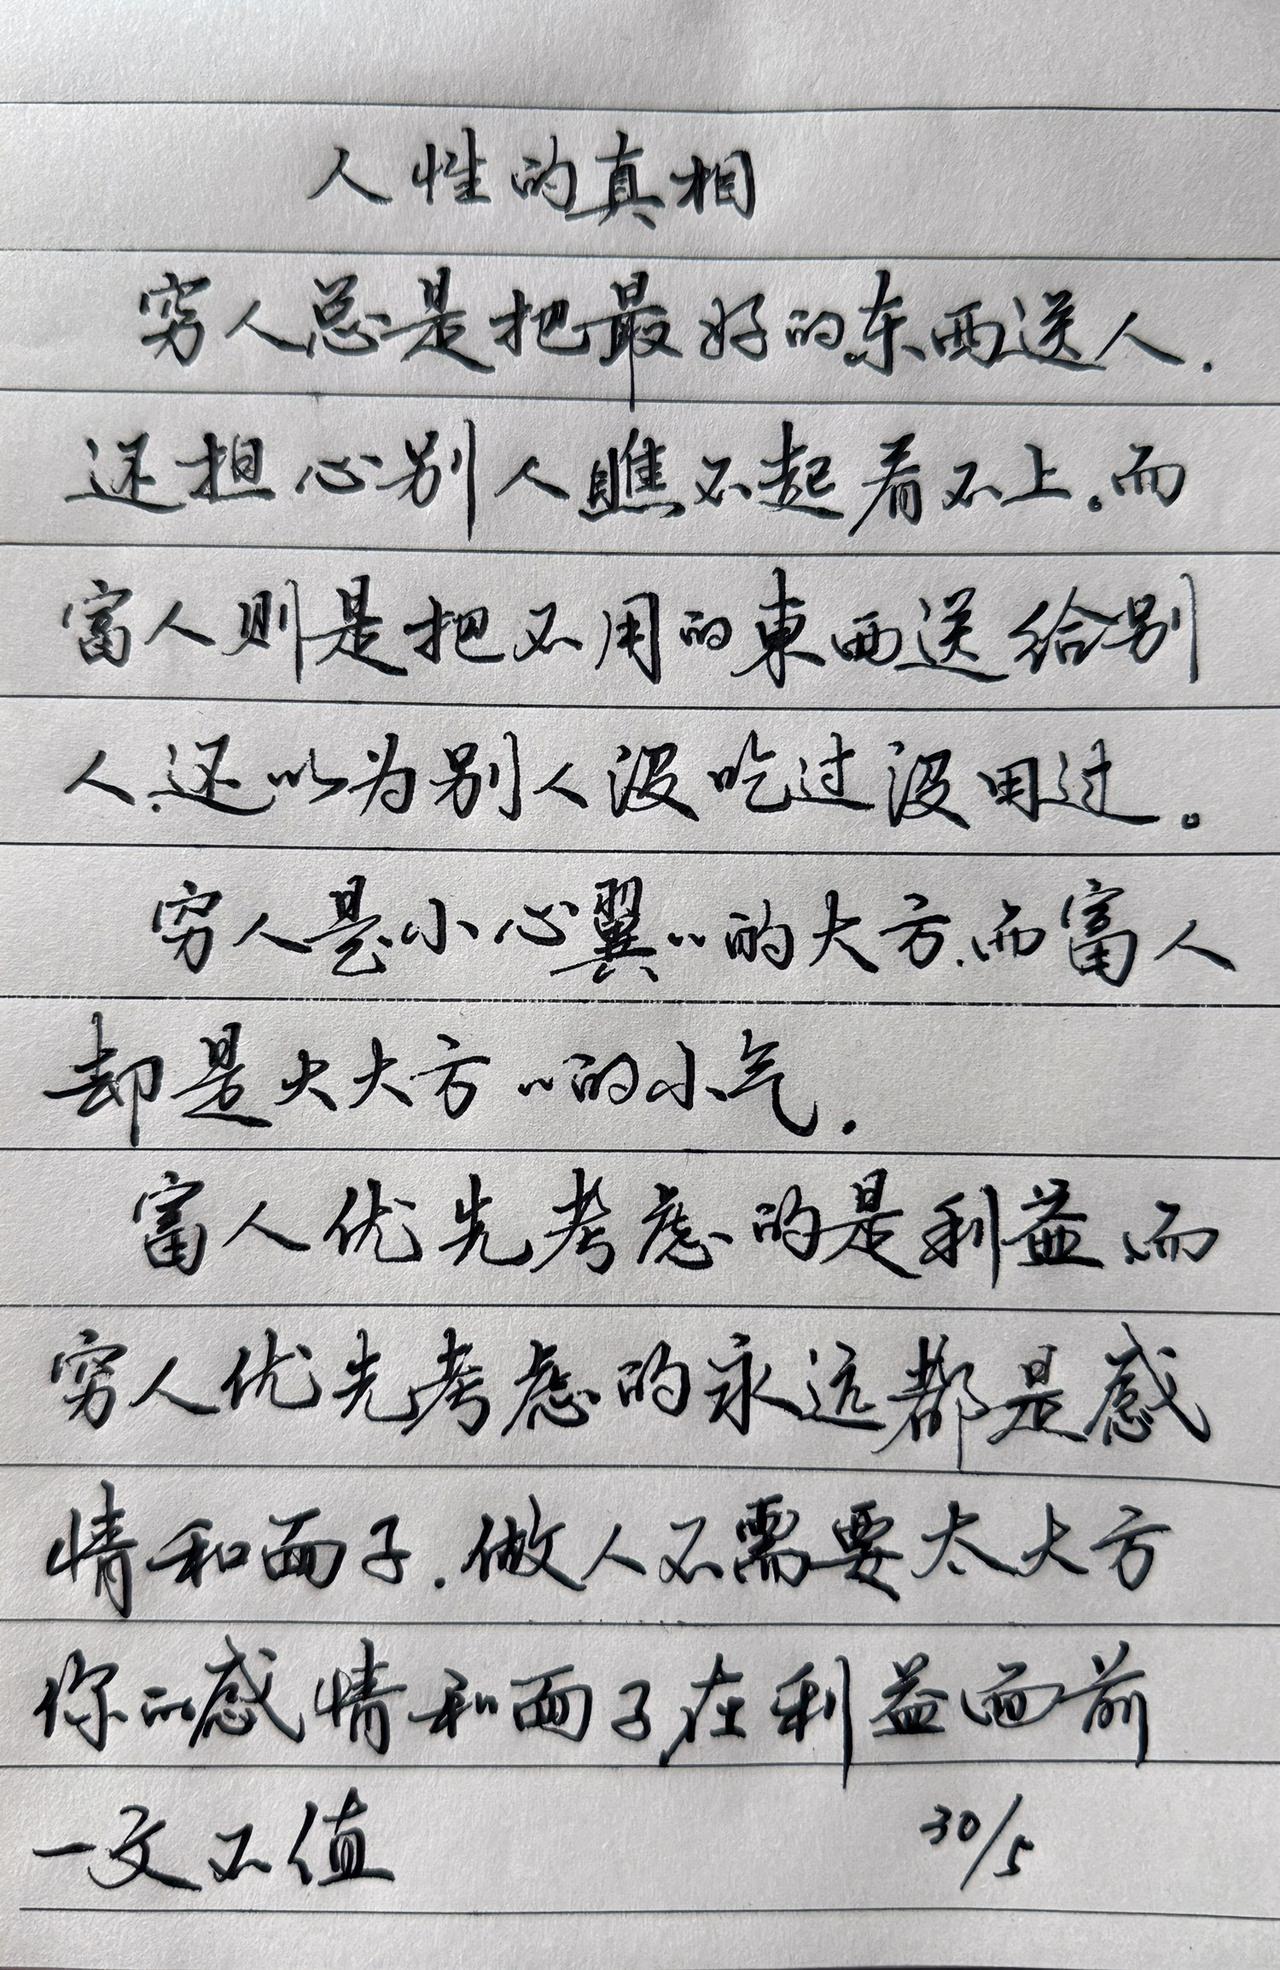 人性的真相
穷人总是把最好的东西送人.
还担心别人瞧不起看不上。而
富人则是把不用的東西送给别
人,还以为别人没吃过没用过。
穷人是小心翼〃的大方,而富人
却是大大方〃的小气.
富人优先考虑的是利益,而
穷人优先考虑的永远都是感
情和面子.做人不需要太大方
你的感情和面子,在利益面前
一文不值
30/5